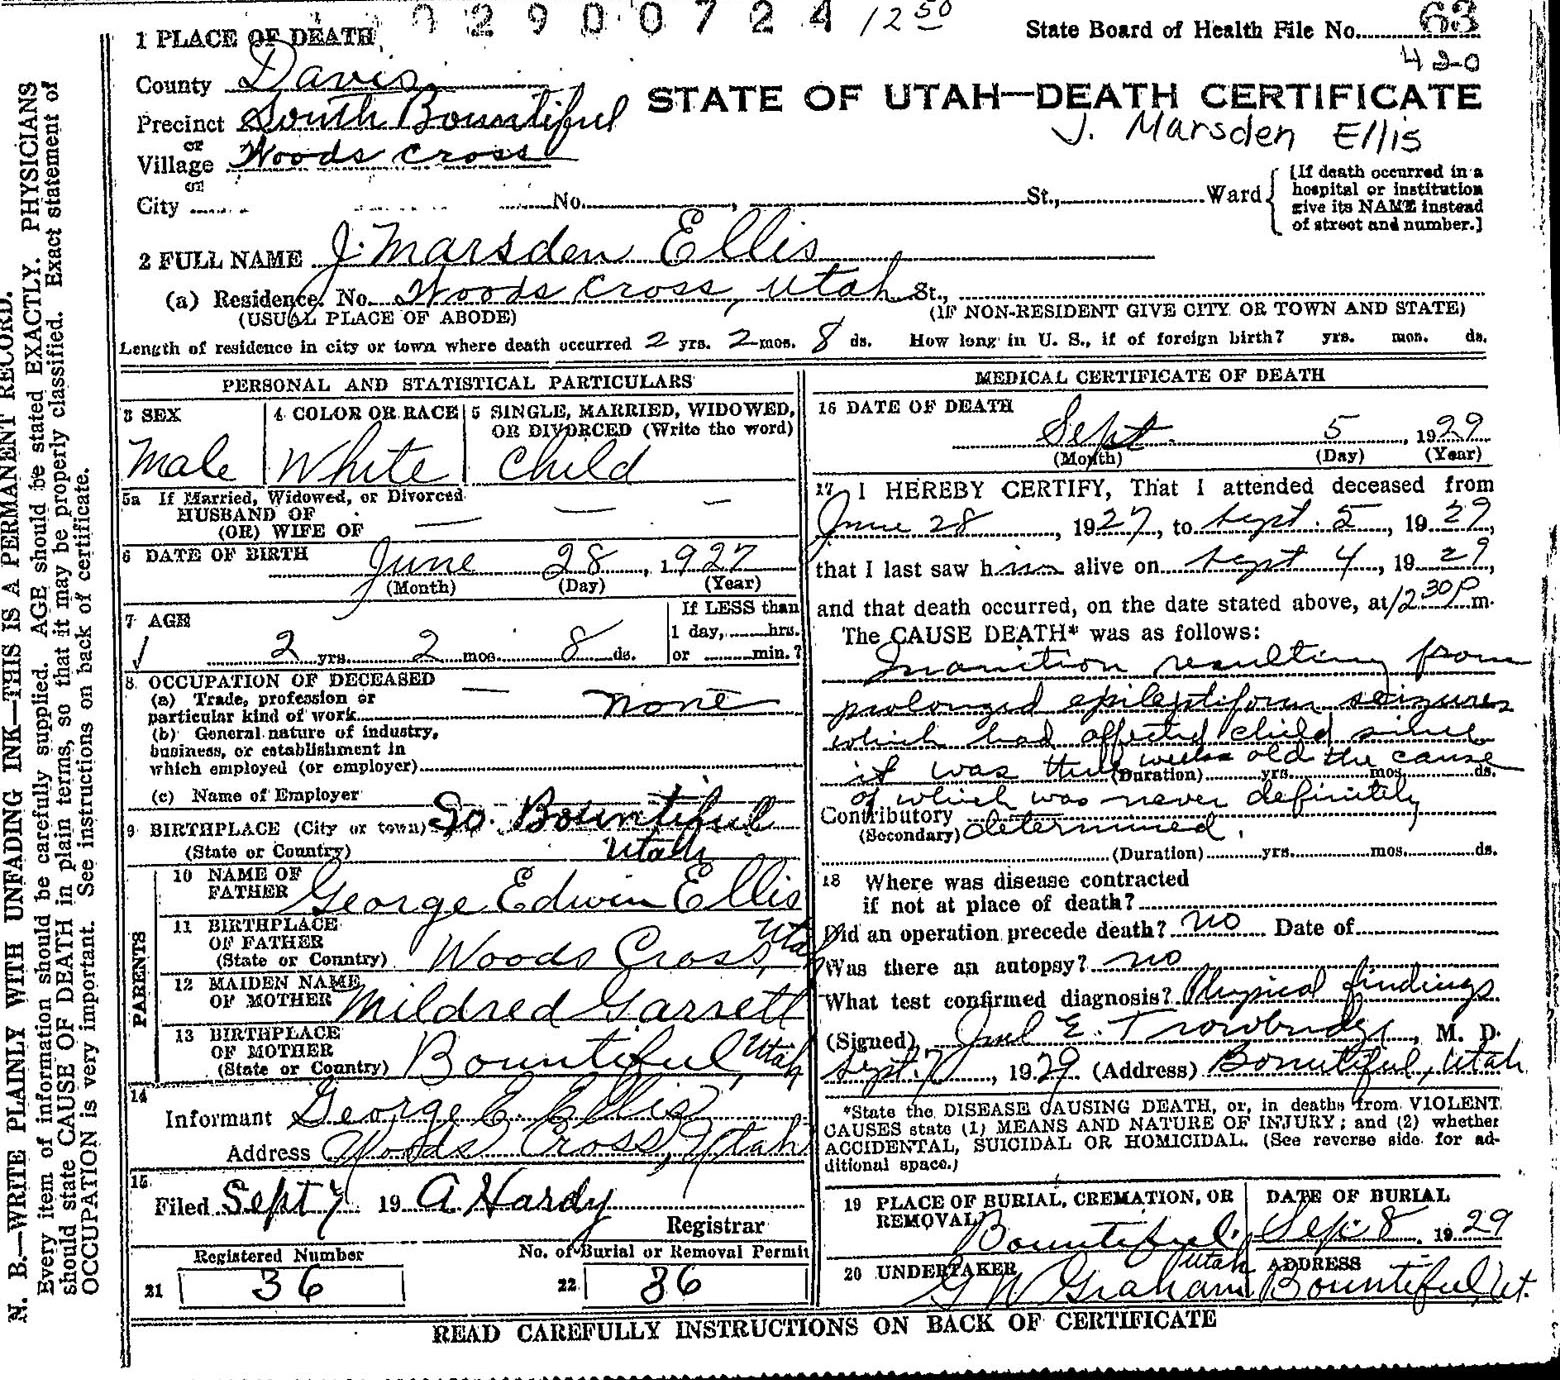 02900724 12 50 State Board of Health File No. 63
420
1 PLACE OF DEATH
County Davis
STATE OF UTAH—DEATH CERTIFICATE
Precinct South Bountiful
J. Marsden Ellis
or
Village Woods Cross
or
City No. , St., Ward
[If death occurred in a
hospital or institution
give its NAME instead
of street and number.]
2 FULL NAME J. Marsden Ellis
(a) Residence. No. Woods Cross, Utah St.,
(USUAL PLACE OF ABODE) (IF NON-RESIDENT GIVE CITY OR TOWN AND STATE)
Length of residence in city or town where death occurred 2 yrs. 2 mos. 8 ds. How long in U. S., if of foreign birth? yrs. mos. ds.
PERSONAL AND STATISTICAL PARTICULARS
3 SEX 4 COLOR OR RACE 5 SINGLE, MARRIED, WIDOWED,
OR DIVORCED (Write the word)
Male White Child
5a If Married, Widowed, or Divorced
HUSBAND OF
(OR) WIFE OF — — —
6 DATE OF BIRTH June 28, 1927
(Month) (Day) (Year)
7 AGE If LESS than
1 day, hrs.
2 yrs. 2 mos. 8 ds. or min.?
8 OCCUPATION OF DECEASED
(a) Trade, profession or
particular kind of work — none
(b) General nature of industry,
business, or establishment in
which employed (or employer)
(c) Name of Employer
9 BIRTHPLACE (City or town) So. Bountiful
(State or Country) Utah
PARENTS
10 NAME OF
FATHER George Edwin Ellis
11 BIRTHPLACE
OF FATHER
(State or Country) Woods Cross, Utah
12 MAIDEN NAME
OF MOTHER Mildred Garrett
13 BIRTHPLACE
OF MOTHER
(State or Country) Bountiful, Utah
14
Informant George E. Ellis
Address Woods Cross, Utah
15
Filed Sept 7 19 A Hardy
Registrar
Registered Number No. of Burial or Removal Permit
21 36 22 36
MEDICAL CERTIFICATE OF DEATH
16 DATE OF DEATH
Sept 5, 1929
(Month) (Day) (Year)
17 I HEREBY CERTIFY, That I attended deceased from
June 28, 1927, to Sept. 5, 1929,
that I last saw him alive on Sept 4, 1929,
and that death occurred, on the date stated above, at 12 30 P m.
The CAUSE DEATH* was as follows:
Inanition resulting from
prolonged epileptiform seizures
which had affected child since
it was weeks old the cause
(Duration) yrs. mos. ds.
of which was never definitely
Contributory
(Secondary) determined.
(Duration) yrs. mos. ds.
18 Where was disease contracted
if not at place of death?
Did an operation precede death? no Date of
Was there an autopsy? no
What test confirmed diagnosis? Physical findings
(Signed) E. Trowbridge, M. D.
Sept. 7, 1929 (Address) Bountiful, Utah
*State the DISEASE CAUSING DEATH, or, in deaths from VIOLENT
CAUSES state (1) MEANS AND NATURE OF INJURY; and (2) whether
ACCIDENTAL, SUICIDAL OR HOMICIDAL. (See reverse side for ad-
ditional space.)
19 PLACE OF BURIAL, CREMATION, OR DATE OF BURIAL
REMOVAL Bountiful, Utah Sep. 8 1929
20 UNDERTAKER ADDRESS
G W Graham Bountiful, Ut.
READ CAREFULLY INSTRUCTIONS ON BACK OF CERTIFICATE
N. B.—WRITE PLAINLY WITH UNFADING INK—THIS IS A PERMANENT RECORD.
Every item of information should be carefully supplied. AGE should be stated EXACTLY. PHYSICIANS
should state CAUSE OF DEATH in plain terms, so that it may be properly classified. Exact statement of
OCCUPATION is very important. See instructions on back of certificate.